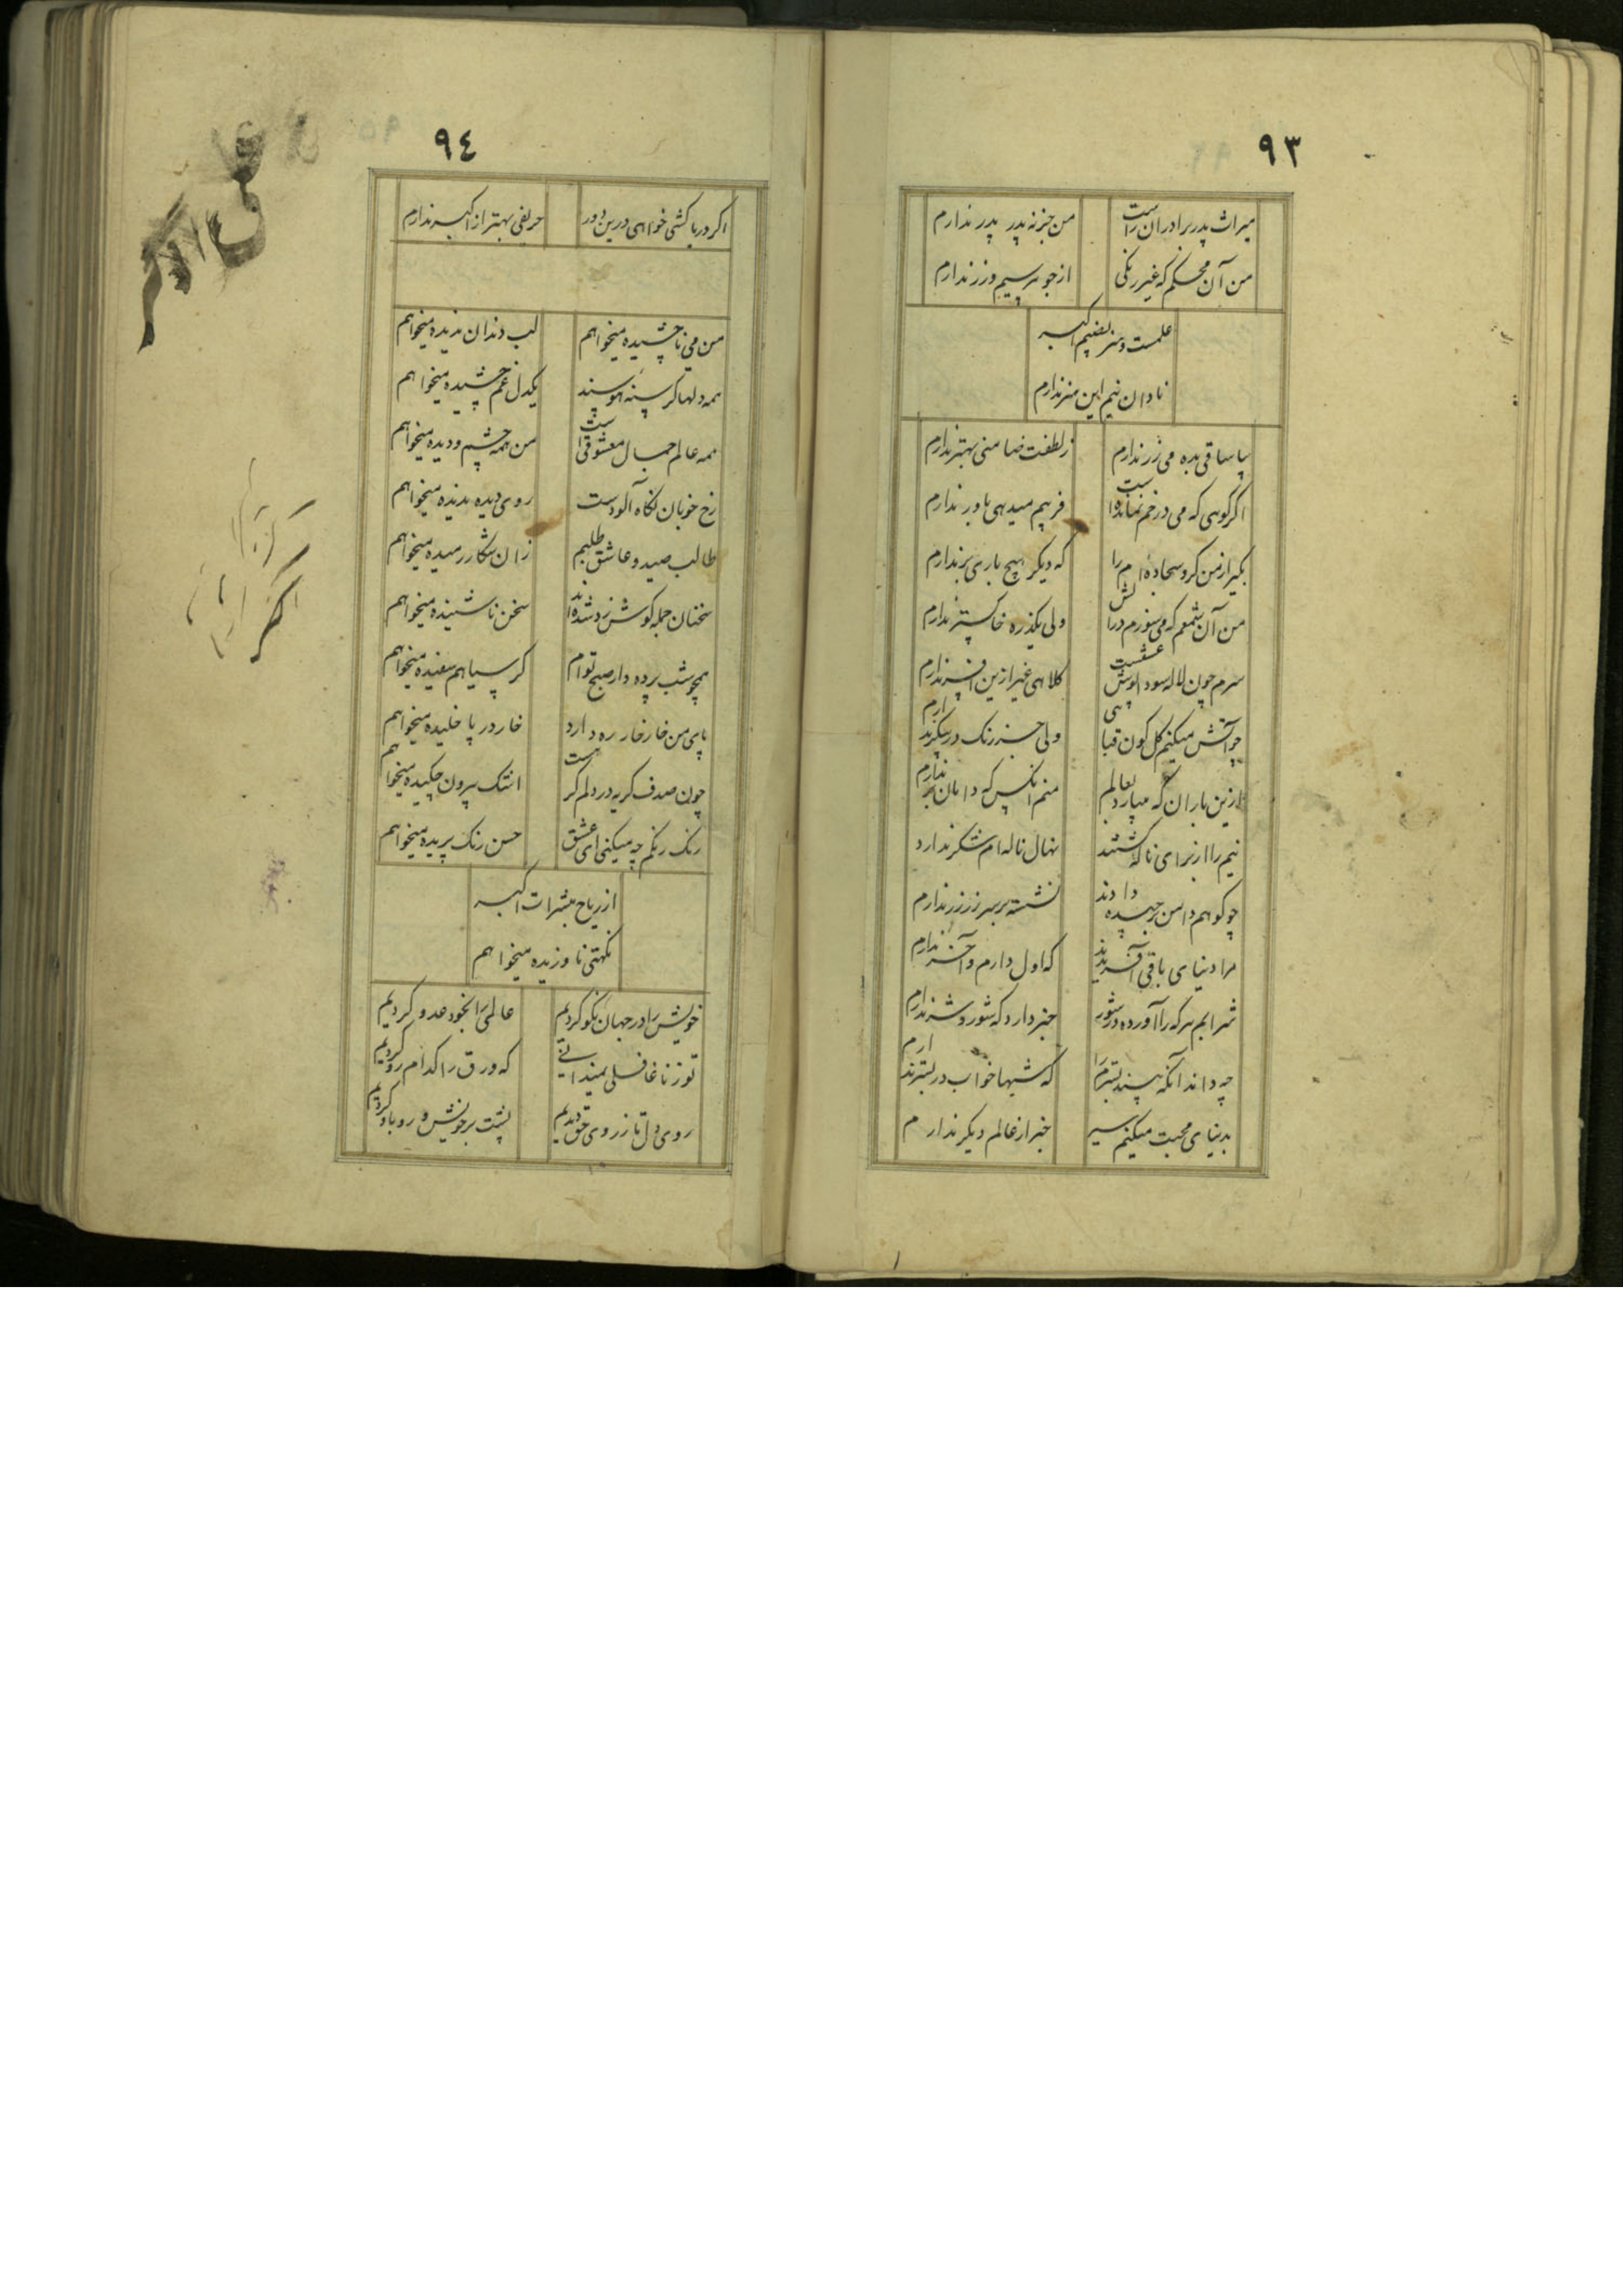 ٩٣
میراث پدر برادران راست
من جز نه پدر پدر ندارم
من آن محکم که غیر رنکی
از جوهر سیم و زر ندارم
علمست و هنر نصیبم اکبر
نادان نیم این هنر ندارم
بیا ساقی بده می زر ندارم
ز لطفت ضامنی بهتر ندارم
اکر کوهی که می در خم نماندست
فریبم میدهی باور ندارم
بکیر از من کرو سجادهٔ ام را
که دیکر هیچ باری بر ندارم
من آن شمعم که می سوزم در
ولی یکذره خاکستر ندارم
سرم چون لاله سودا پوش عشقست
کلاهی غیر ازین افسر ندارم
چو آتش میکنم کل کون قبا
ولی جز رنک در پیکر ندارم
ازین باران که میبارد بعالم
منم آنکس که دامان تر ندارم
نیم را از برای ناله کشتند
نهال ناله ام شکر ندارد
چو کوهم دامن برچیده دادند
نشسته بر سر زر زر ندارم
مرا دنیای باقی آفریدند
که اول دارم و آخر ندارم
شرابم هر که را آورده در شور
خبر دارد که شور و شر ندارم
چه داند آنکه بیند بسترم را
که شبها خواب در بستر ندارم
بدنیای محبت میکنم سیر
خبر از عالم دیکر ندارم
٩٤
اکر دریا کشی خواهی درین دور
حریفی بهتر از اکبر ندارم
من می ناچشیده میخواهم
لب دندان ندیده میخواهم
همه دلها کرسنه هوسند
یکدل غم چشیده میخواهم
همه عالم جمال معشوقست
من همه چشم و دیده میخواهم
رخ خوبان نکاه آلودست
روی دیده ندیده میخواهم
طالب صید و عاشق طلبم
زان شکار رمیده میخواهم
سخنان جمله کوش زد شده اند
سخن ناشنیده میخواهم
همچو شب پرده دار صبح توام
کر سیاهم سفیده میخواهم
پای من خار خار ره دارد
خار در پا خلیده میخواهم
چون صدف کریه در دلم کرهست
اشک بیرون چکیده میخواهم
رنک رنکم چه میکنی ای عشق
حسن رنک پریده میخواهم
از ریاح مبشرات اکبر
نکهتی ناوزیده میخواهم
خویش را در جهان نکو کردیم
عالمی را بخود عدو کردیم
تو ز ما غافلی نمیدانی
که ورق را کدام رو کردیم
روی دل تا ز روی حق دیدیم
پشت بر خویش و رو باو کردیم